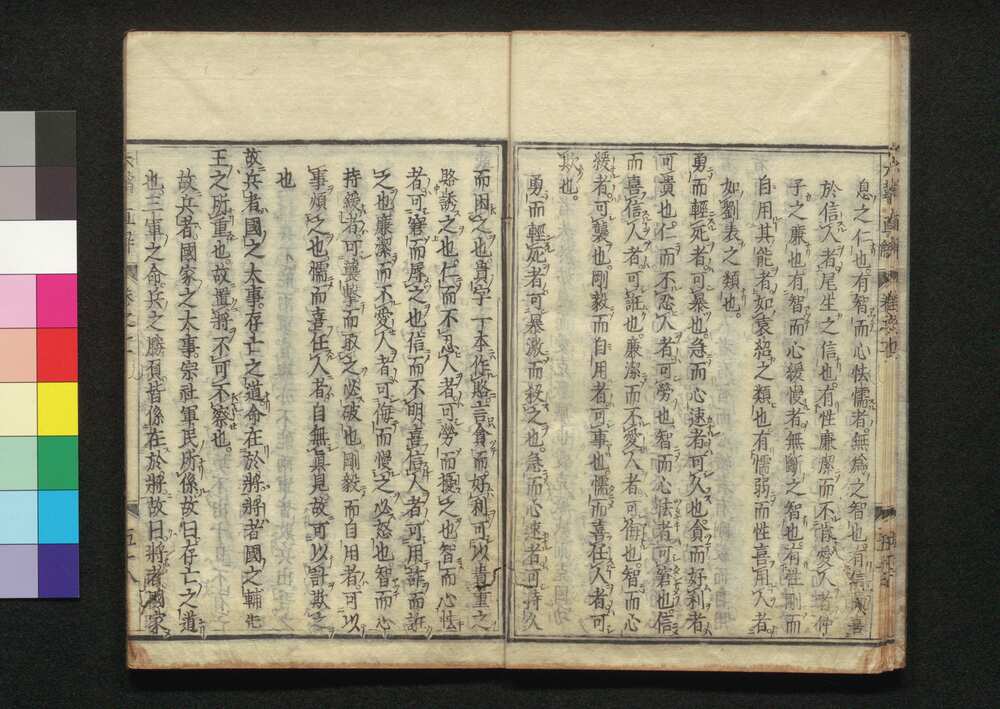 息之仁也有智而心怯懦者無爲之智也有信而喜
於信人者尾生之信也有性廉潔而不肯愛人者仲
子之廉也有智而心緩慢者無斷之智也有性剛而
自用其能者如袁紹之類也有懦弱而性喜用人者
如劉表之類也
勇而輕死者可暴也急而心速者可久也貪而好利者
可遺也仁而不忍人者可勞也智而心怯者可窘也信
而喜信人者可誑也廉潔而不愛人者可侮也智而心
緩者可襲也剛毅而自用者可事也懦而喜任人者可
欺也
勇而輕死者可暴激而殺之也急而心速者可持久
而困之也貴字一本作賂言貪而好利可以貴重之
賂誘之也仁而不忍人者可勞而擾之也智而心怯
者可窘而辱之也信而不明喜信人者可用詐而誑
之也廉潔而不愛人者可侮而慢之必怒也智而心
持緩者可襲擊而取之必破也剛毅而自用者可以
事煩之也懦而喜任人者自無真見故可以詐欺之
也
故兵者國之大事存亡之道命在於將將者國之輔先
王之所重也故置將不可不察也
故兵者國家之大事宗社軍民所係故曰存亡之道
也三軍之命兵之勝負皆係在於將故曰將者國家